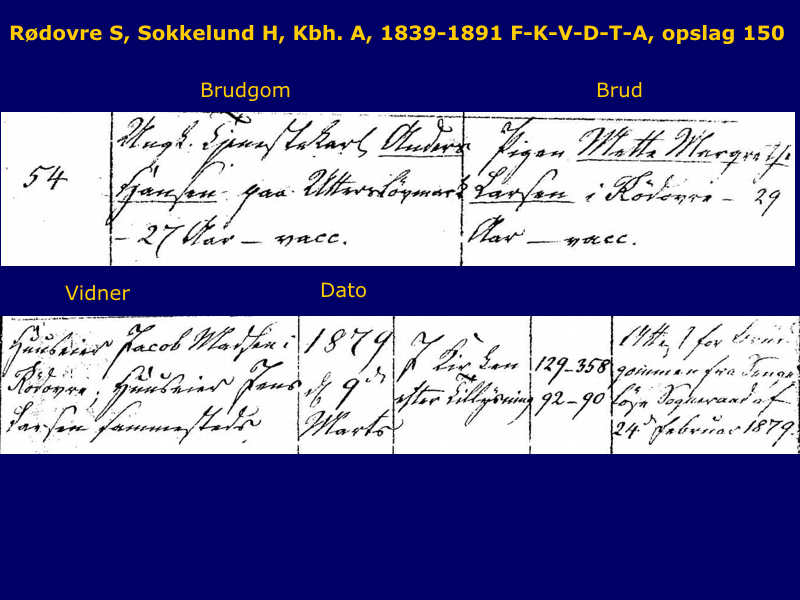 Rødovre S, Sokkelund H, Kbh. A, 1839-1891 F-K-V-D-T-A, opslag 150
Brudgom
Brud
54
Ungk. Tjenestekarl Anders
Hansen paa Utterslevmark
- 27 Aar - vacc.
Pigen Mette Margrethe
Larsen i Rödovre - 29
Aar - vacc.
Vidner
Dato
Huuseier Jacob Madsen i
Rödovre, Huuseier Jens
Larsen sammesteds
1879
d. 9de
Marts
I Kirken
efter Tillysning
129-358
92-90
for Brud
gommen fra
Sogneraad af
24de Februar 1879.